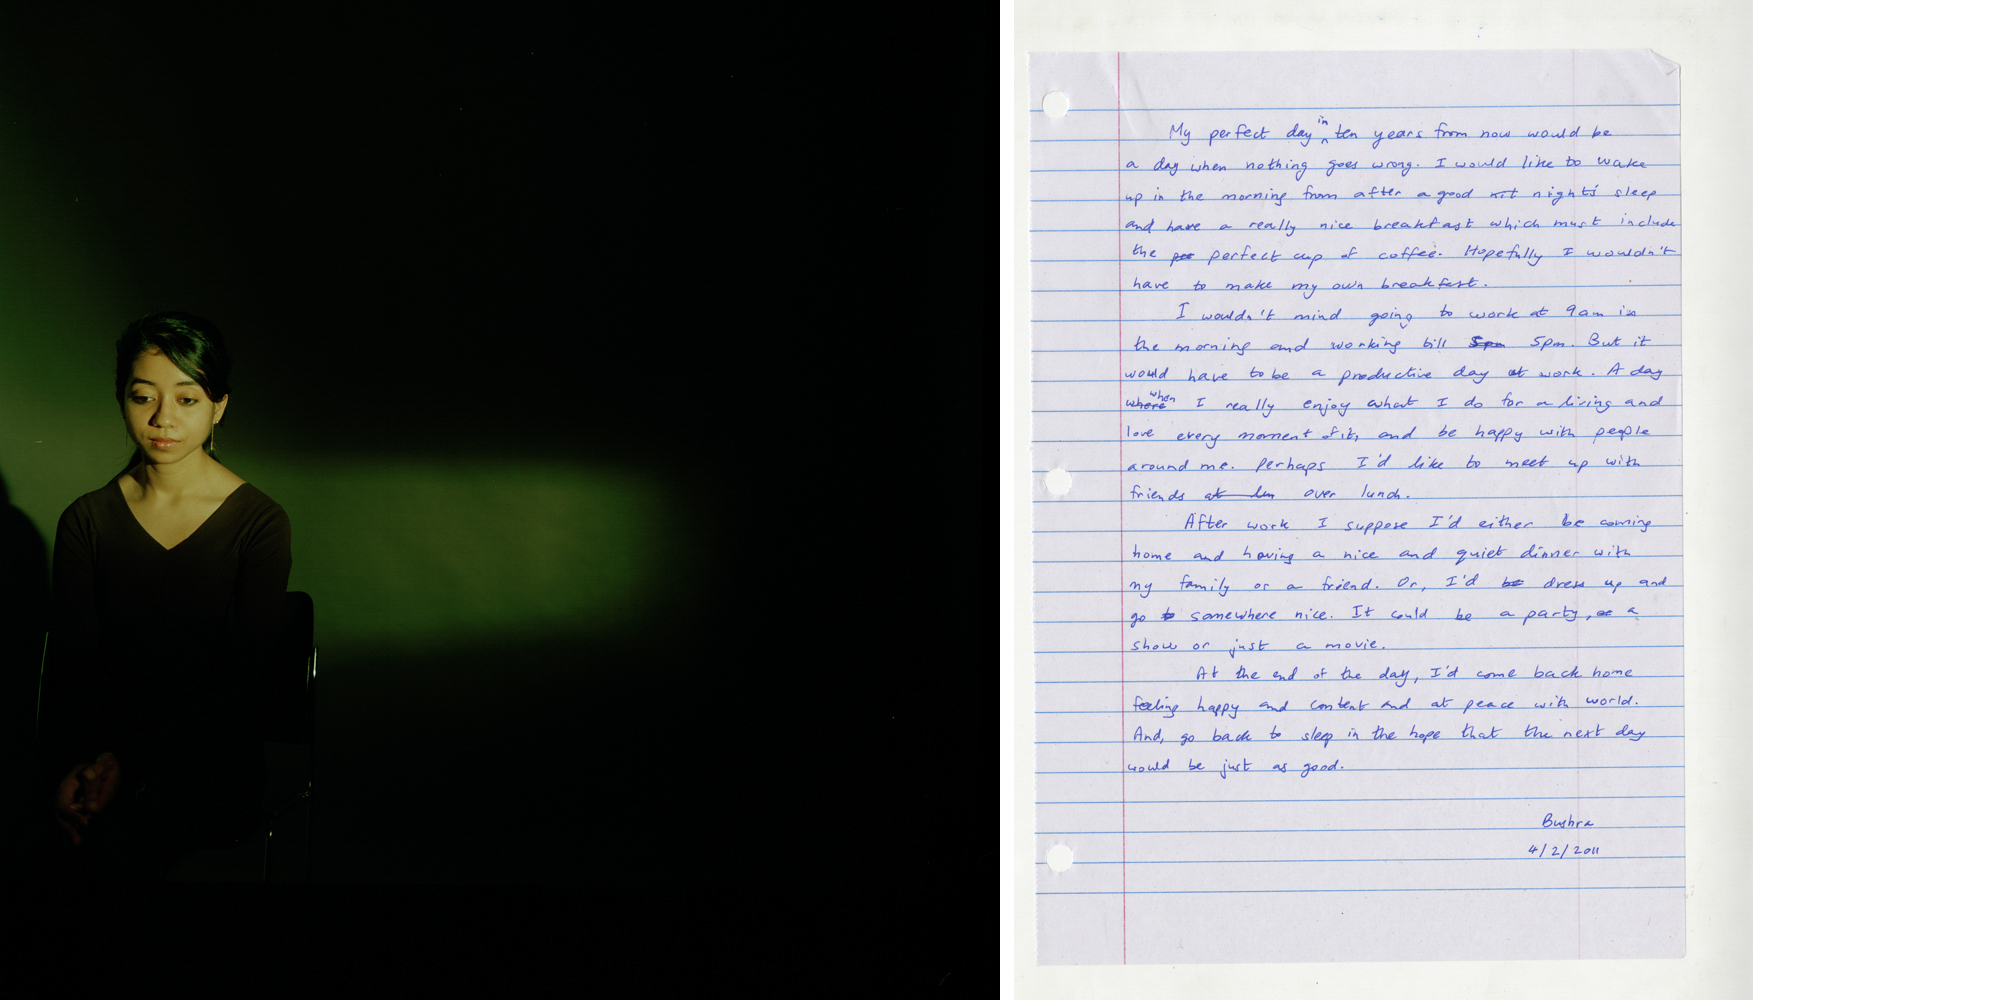 My perfect day in ten years from now would be
a day when nothing goes wrong. I would like to wake
up in the morning from after a good nit night's sleep
and have a really nice breakfast which must include
the per perfect cup of coffee. Hopefully I wouldn't
have to make my own breakfast.
I wouldn't mind going to work at 9am in
the morning and working till 5pm 5pm. But it
would have to be a productive day at work. A day
where when I really enjoy what I do for a living and
love every moment of it, and be happy with people
around me. Perhaps I'd like to meet up with
friends at lun over lunch.
After work I suppose I'd either be coming
home and having a nice and quiet dinner with
my family or a friend. Or, I'd be dress up and
go to somewhere nice. It could be a party, or a
show or just a movie.
At the end of the day, I'd come back home
feeling happy and content and at peace with world.
And, go back to sleep in the hope that the next day
would be just as good.
Bushra
4/2/2011